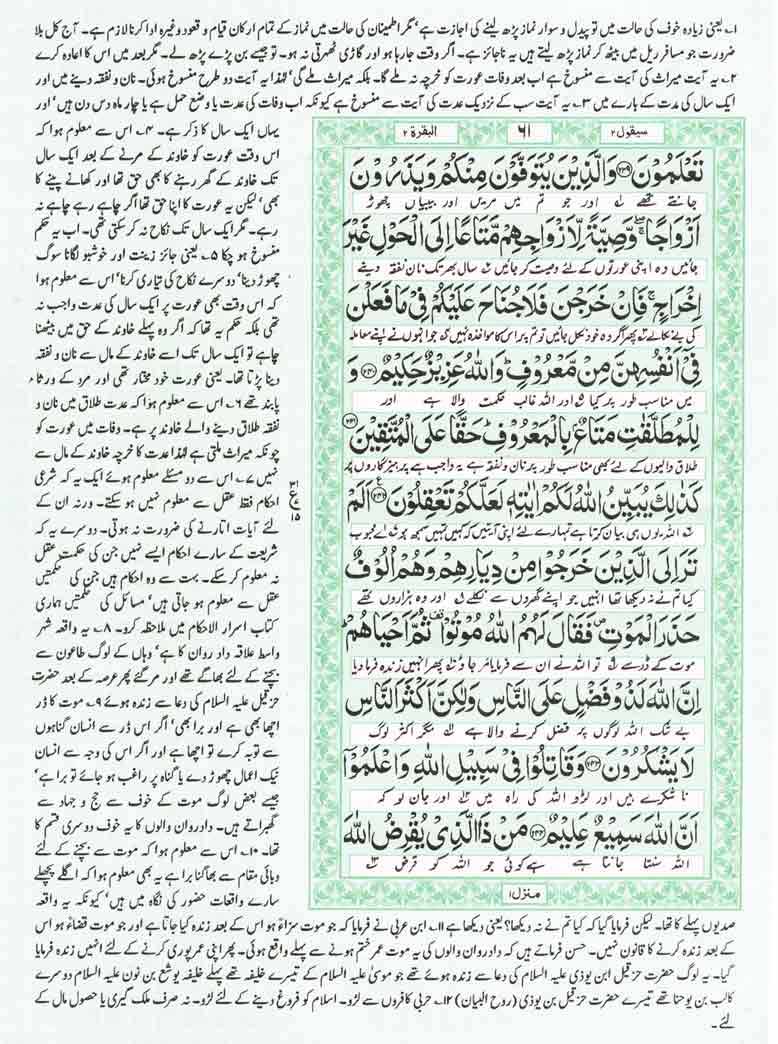 ۱۔ یعنی زیادہ خوف کی حالت میں تو پیدل و سوار نماز پڑھ لینے کی اجازت ہے، مگر اطمینان کی حالت میں نماز کے تمام ارکان قیام و قعود وغیرہ ادا کرنا لازم ہے۔ آج کل بلا
ضرورت جو مسافر ریل میں بیٹھ کر نماز پڑھ لیتے ہیں یہ ناجائز ہے۔ اگر وقت جا رہا ہو اور گاڑی ٹھہرتی نہ ہو۔ تو جیسے بن پڑے پڑھ لے۔ مگر بعد میں اس کا اعادہ کرے
۲۔ یہ آیت میراث کی آیت سے منسوخ ہے اب بعد وفات عورت کو خرچہ نہ ملے گا۔ بلکہ میراث ملے گی، لہٰذا یہ آیت دو طرح منسوخ ہوئی۔ نان و نفقہ دینے میں اور
ایک سال کی مدت کے بارے میں ۳۔ یہ آیت سب کے نزدیک عدت کی آیت سے منسوخ ہے کیونکہ اب وفات کی عدت یا وضع حمل ہے یا چار ماہ دس دن ہیں، اور
یہاں ایک سال کا ذکر ہے۔ ۴۔ اس سے معلوم ہوا کہ
اس وقت عورت کو خاوند کے مرنے کے بعد ایک سال
تک خاوند کے گھر رہنے کا بھی حق تھا اور کھانے پینے کا
بھی، لیکن یہ عورت کا اپنا حق تھا اگر چاہے رہے چاہے نہ
رہے۔ مگر ایک سال تک نکاح نہ کر سکتی تھی۔ اب یہ حکم
منسوخ ہو چکا ۵۔ یعنی جائز زینت اور خوشبو لگانا سوگ
چھوڑ دینا، دوسرے نکاح کی تیاری کرنا، اس سے معلوم ہوا
کہ اس وقت بھی عورت پر ایک سال کی عدت واجب نہ
تھی بلکہ حکم یہ تھا کہ اگر وہ پہلے خاوند کے حق میں بیٹھنا
چاہے تو ایک سال تک اسے خاوند کے مال سے نان و نفقہ
دینا پڑتا تھا۔ یعنی عورت خود مختار تھی اور مرد کے ورثاء
پابند تھے ۶۔ اس سے معلوم ہوا کہ عدت طلاق میں نان و
نفقہ طلاق دینے والے خاوند پر ہے۔ وفات میں عورت کو
چونکہ میراث ملتی ہے لہٰذا عدت کا خرچہ خاوند کے مال سے
نہیں ۷۔ اس سے دو مسئلے معلوم ہوئے ایک یہ کہ شرعی
احکام فقط عقل سے معلوم نہیں ہو سکتے۔ ورنہ ان کے
لئے آیات اتارنے کی ضرورت نہ ہوتی۔ دوسرے یہ کہ
شریعت کے سارے احکام ایسے نہیں جن کی حکمت عقل
نہ معلوم کر سکے۔ بہت سے وہ احکام ہیں جن کی حکمتیں
عقل سے معلوم ہو جاتی ہیں، مسائل کی حکمتیں ہماری
کتاب اسرار الاحکام میں ملاحظہ کرو۔ ۸۔ یہ واقعہ شہر
واسط علاقہ داوردان کا ہے، وہاں کے لوگ طاعون سے
بچنے کے لئے بھاگے تھے اور مر گئے پھر عرصہ کے بعد حضرت
حزقیل علیہ السلام کی دعا سے زندہ ہوئے ۹۔ موت کا ڈر
اچھا بھی ہے اور برا بھی، اگر اس ڈر سے انسان گناہوں
سے توبہ کرے تو اچھا ہے اور اگر اس کی وجہ سے انسان
نیک اعمال چھوڑ دے یا گناہ پر راغب ہو جائے تو برا ہے،
جیسے بعض لوگ موت کے خوف سے حج و جہاد سے
گھبراتے ہیں۔ داوردان والوں کا یہ خوف دوسری قسم کا
تھا۔ ۱۰۔ اس سے معلوم ہوا کہ موت سے بچنے کے لئے
وبائی مقام سے بھاگنا برا ہے یہ بھی معلوم ہوا کہ اگلے پچھلے
سارے واقعات حضور کی نگاہ میں ہیں، کیونکہ یہ واقعہ
سیقول ۲
۶۱
البقرة ۲
تَعْلَمُوْنَ ﴿۲۳۹﴾ وَالَّذِيْنَ يُتَوَفَّوْنَ مِنْكُمْ وَيَذَرُوْنَ
جانتے تھے اور جو تم میں مریں اور بیبیاں چھوڑ
اَزْوَاجًا ۖ وَّصِيَّةً لِّاَزْوَاجِهِمْ مَّتَاعًا اِلَى الْحَوْلِ غَيْرَ
جائیں وہ اپنی عورتوں کے لئے وصیت کر جائیں سال بھر تک نان نفقہ دینے
اِخْرَاجٍ ۚ فَاِنْ خَرَجْنَ فَلَا جُنَاحَ عَلَيْكُمْ فِيْ مَا فَعَلْنَ
کی بے نکالے پھر اگر وہ خود نکل جائیں تو تم پر اس کا مواخذہ نہیں جو انہوں نے اپنے معاملہ
فِيْٓ اَنْفُسِهِنَّ مِنْ مَّعْرُوْفٍ ؕ وَاللّٰهُ عَزِيْزٌ حَكِيْمٌ ﴿۲۴۰﴾ وَ
میں مناسب طور پر کیا اور اللہ غالب حکمت والا ہے اور
لِلْمُطَلَّقٰتِ مَتَاعٌۢ بِالْمَعْرُوْفِ ؕ حَقًّا عَلَى الْمُتَّقِيْنَ ﴿۲۴۱﴾
طلاق والیوں کے لئے بھی مناسب طور پر نان و نفقہ ہے یہ واجب ہے پرہیزگاروں پر
كَذٰلِكَ يُبَيِّنُ اللّٰهُ لَكُمْ اٰيٰتِهٖ لَعَلَّكُمْ تَعْقِلُوْنَ ﴿۲۴۲﴾ اَلَمْ
اللہ یوں ہی بیان کرتا ہے تمہارے لئے اپنی آیتیں کہ کہیں تمہیں سمجھ ہو اے محبوب
تَرَ اِلَى الَّذِيْنَ خَرَجُوْا مِنْ دِيَارِهِمْ وَهُمْ اُلُوْفٌ
کیا تم نے نہ دیکھا تھا انہیں جو اپنے گھروں سے نکلے اور وہ ہزاروں تھے
حَذَرَ الْمَوْتِ ۪ فَقَالَ لَهُمُ اللّٰهُ مُوْتُوْا ۫ ثُمَّ اَحْيَاهُمْ ؕ
موت کے ڈر سے تو اللہ نے ان سے فرمایا مر جاؤ پھر انہیں زندہ فرما دیا
اِنَّ اللّٰهَ لَذُوْ فَضْلٍ عَلَى النَّاسِ وَلٰكِنَّ اَكْثَرَ النَّاسِ
بے شک اللہ لوگوں پر فضل کرنے والا ہے مگر اکثر لوگ
لَا يَشْكُرُوْنَ ﴿۲۴۳﴾ وَقَاتِلُوْا فِيْ سَبِيْلِ اللّٰهِ وَاعْلَمُوْٓا
ناشکرے ہیں اور لڑو اللہ کی راہ میں اور جان لو کہ
اَنَّ اللّٰهَ سَمِيْعٌ عَلِيْمٌ ﴿۲۴۴﴾ مَنْ ذَا الَّذِيْ يُقْرِضُ اللّٰهَ
اللہ سنتا جانتا ہے ہے کوئی جو اللہ کو قرض
منزل ۱
صدیوں پہلے کا تھا۔ لیکن فرمایا گیا کہ کیا تم نے نہ دیکھا؟ یعنی دیکھا ہے ۱۱۔ ابن عربی نے فرمایا کہ جو موت سزاءً ہو اس کے بعد زندہ کیا جاتا ہے اور جو موت قضاءً ہو اس
کے بعد زندہ کرنے کا قانون نہیں۔ حسن فرماتے ہیں کہ داوردان والوں کی یہ موت عمر ختم ہونے سے پہلے واقع ہوئی۔ پھر اپنی عمر پوری کرنے کے لئے انہیں زندہ فرمایا
گیا۔ یہ لوگ حضرت حزقیل ابن یوذی علیہ السلام کی دعا سے زندہ ہوئے تھے جو موسیٰ علیہ السلام کے تیسرے خلیفہ تھے پہلے خلیفہ یوشع بن نون علیہ السلام دوسرے
کالب بن یوحنا تھے تیسرے حضرت حزقیل بن یوذی (روح البیان) ۱۲۔ حربی کافروں سے لڑو۔ اسلام کو فروغ دینے کے لئے لڑو۔ نہ صرف ملک گیری یا حصول مال کے
لئے۔